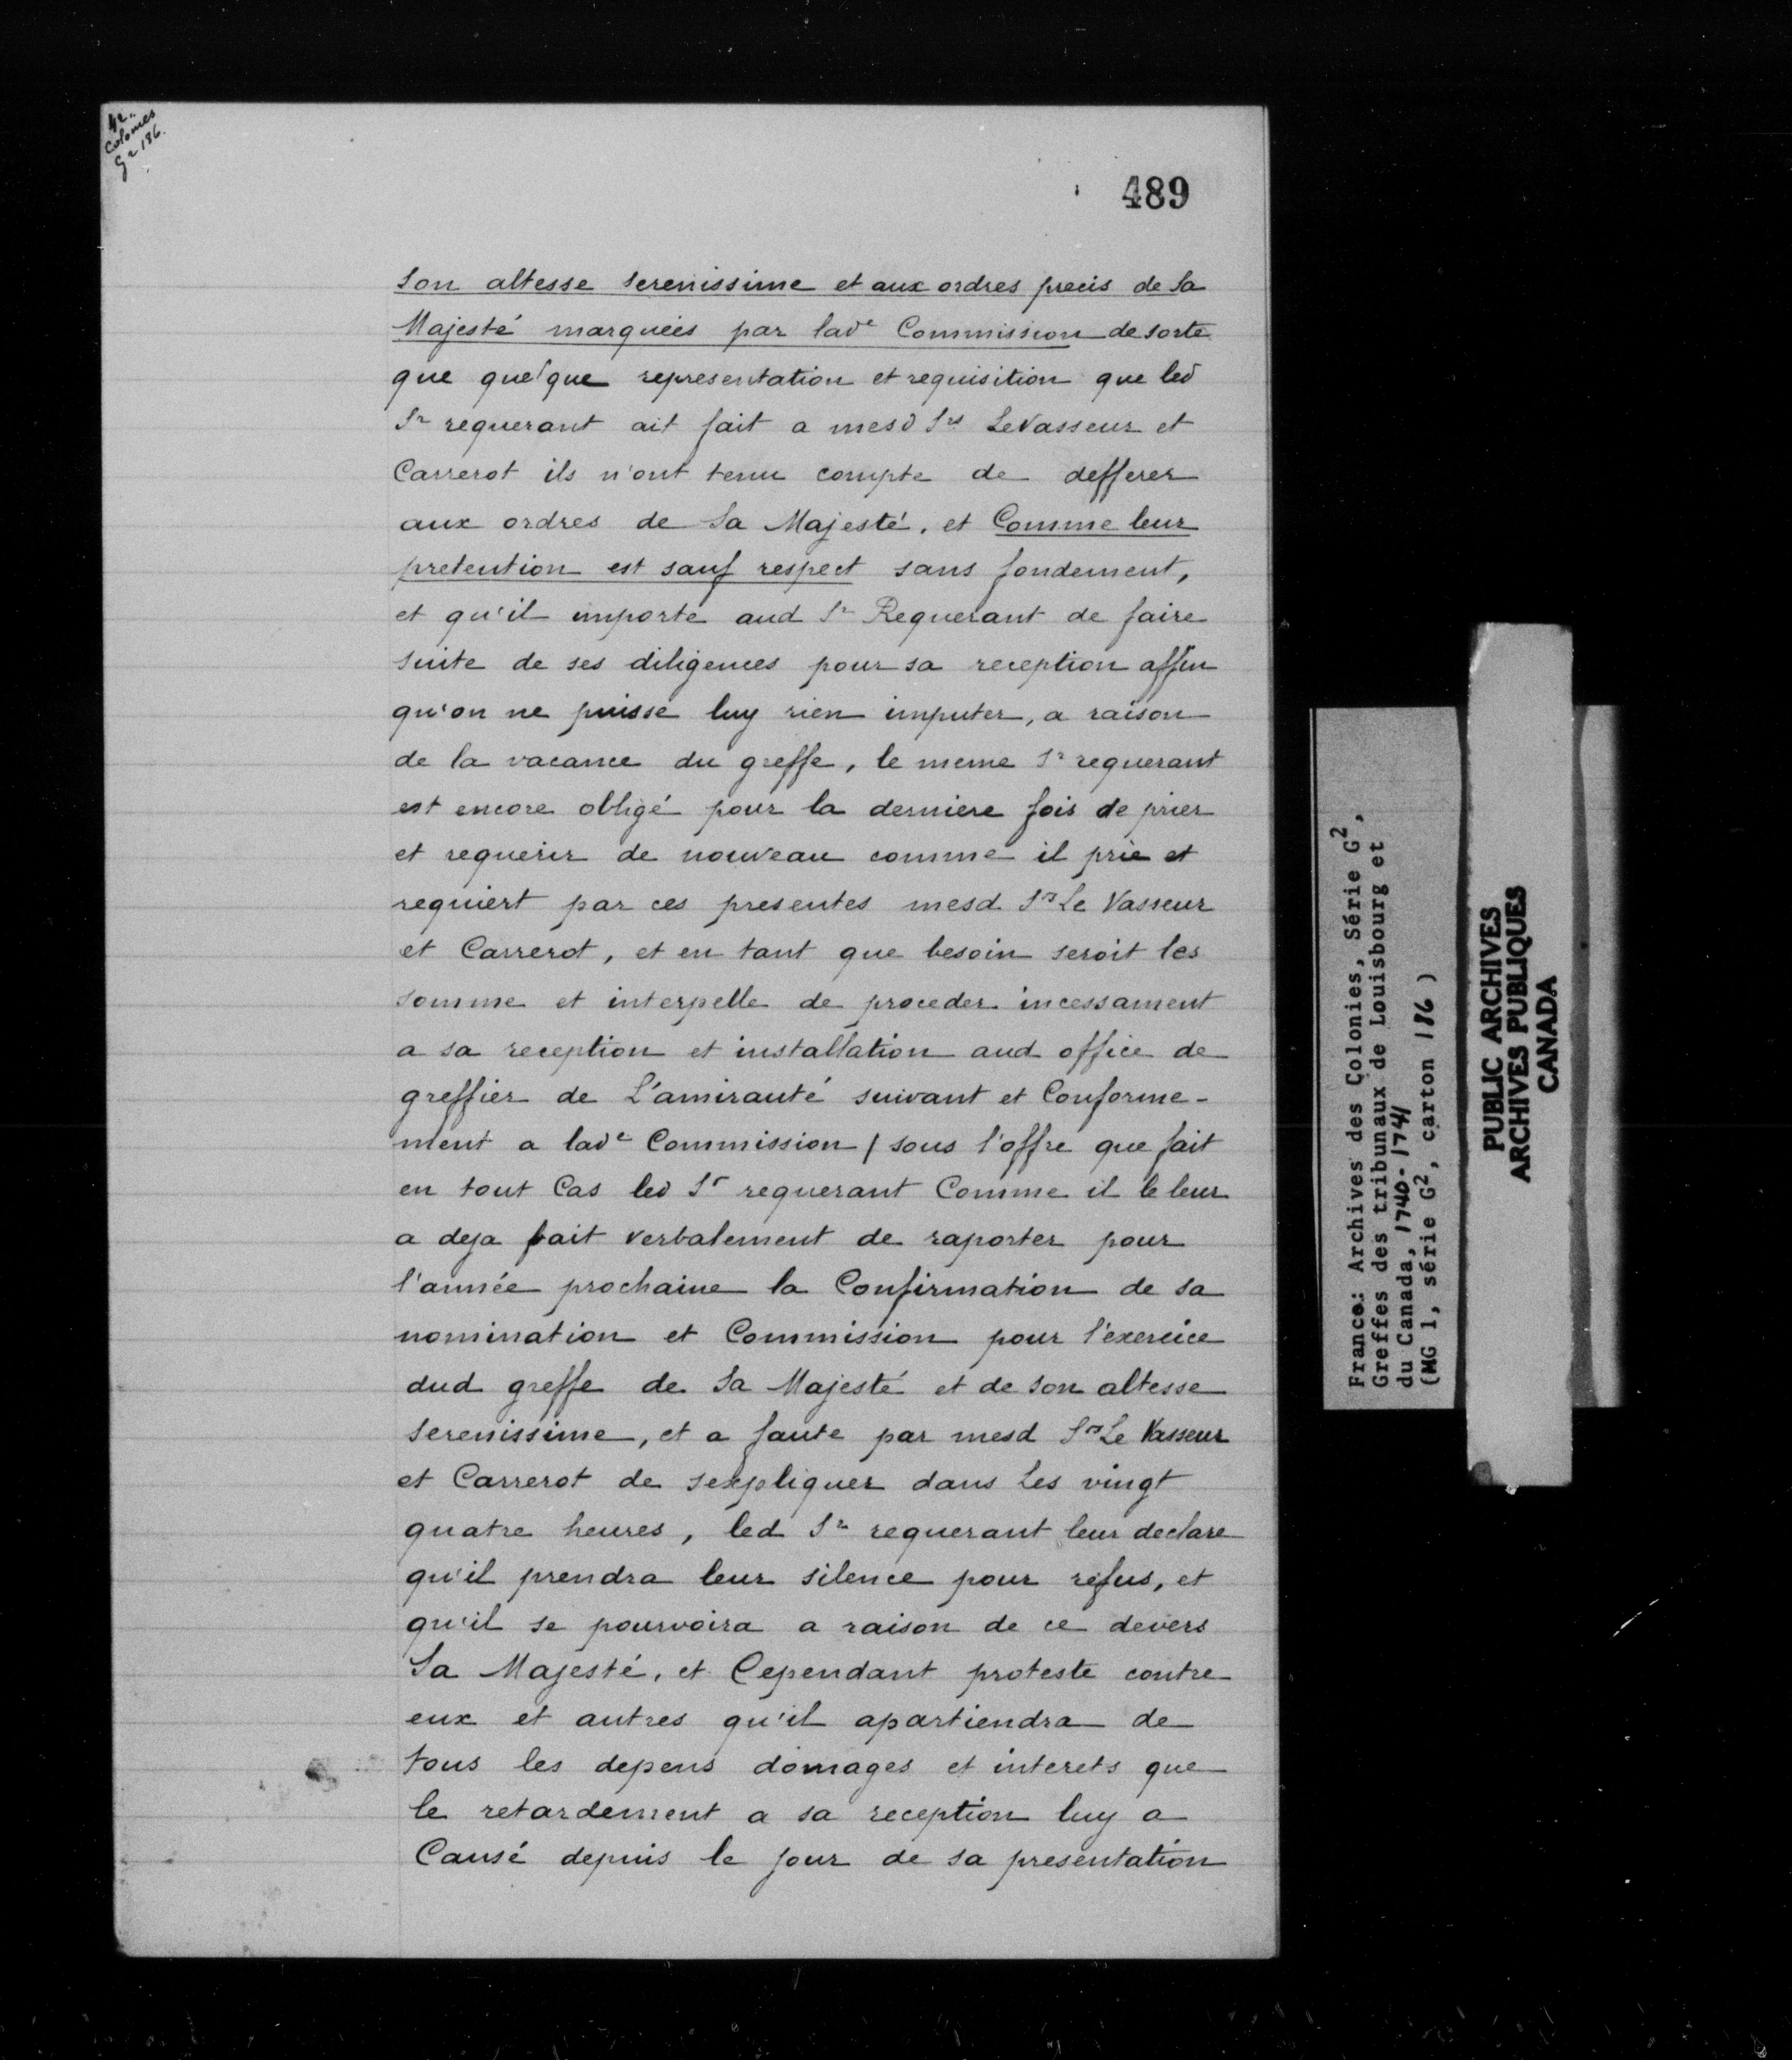 42.
Colonies
G2 186.
489
Son altesse serenissime et aux ordres precis de Sa
Majesté marquées par lade Commission de sorte
que quelque representation et requisition que led
Sr requerant ait fait a mesd Srs LeVasseur et
Carrerot ils n'ont tenu compte de defferer
aux ordres de Sa Majesté, et Comme leur
pretention est sauf respect sans fondement,
et qu'il importe aud Sr Requerant de faire
suite de ses diligences pour sa reception affin
qu'on ne puisse luy rien imputer, a raison
de la vacance du greffe, le meme Sr requerant
est encore obligé pour la derniere fois de prier
et requerir de nouveau comme il prie et
requiert par ces presentes mesd Srs Le Vasseur
et Carrerot, et en tant que besoin seroit les
somme et interpelle de proceder incessament
a sa reception et installation aud office de
greffier de L'amirauté suivant et Conforme-
ment a lade Commission / sous l'offre que fait
en tout Cas led Sr requerant Comme il le leur
a deja fait verbalement de raporter pour
l'année prochaine la Confirmation de sa
nomination et Commission pour l'exercice
dud greffe de Sa Majesté et de Son altesse
Serenissime, et a faute par mesd Srs Le Vasseur
et Carrerot de sexpliquer dans Les vingt
quatre heures, led Sr requerant leur declare
qu'il prendra leur silence pour refus, et
qu'il se pourvoira a raison de ce devers
Sa Majesté, et Cependant proteste contre
eux et autres qu'il apartiendra de
tous les depens domages et interets que
le retardement a sa reception luy a
Causé depuis le jour de sa presentation
France: Archives des Colonies, Série G2,
Greffes des tribunaux de Louisbourg et
du Canada, 1740-1741
(MG 1, série G2, carton 186 )
PUBLIC ARCHIVES
ARCHIVES PUBLIQUES
CANADA